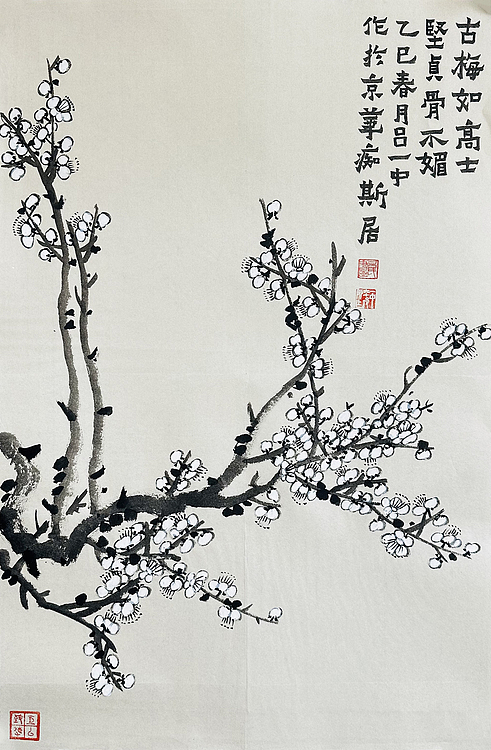 古梅如高士
坚貞骨不媚
乙巳春月吕一中
作於京華痴斯居